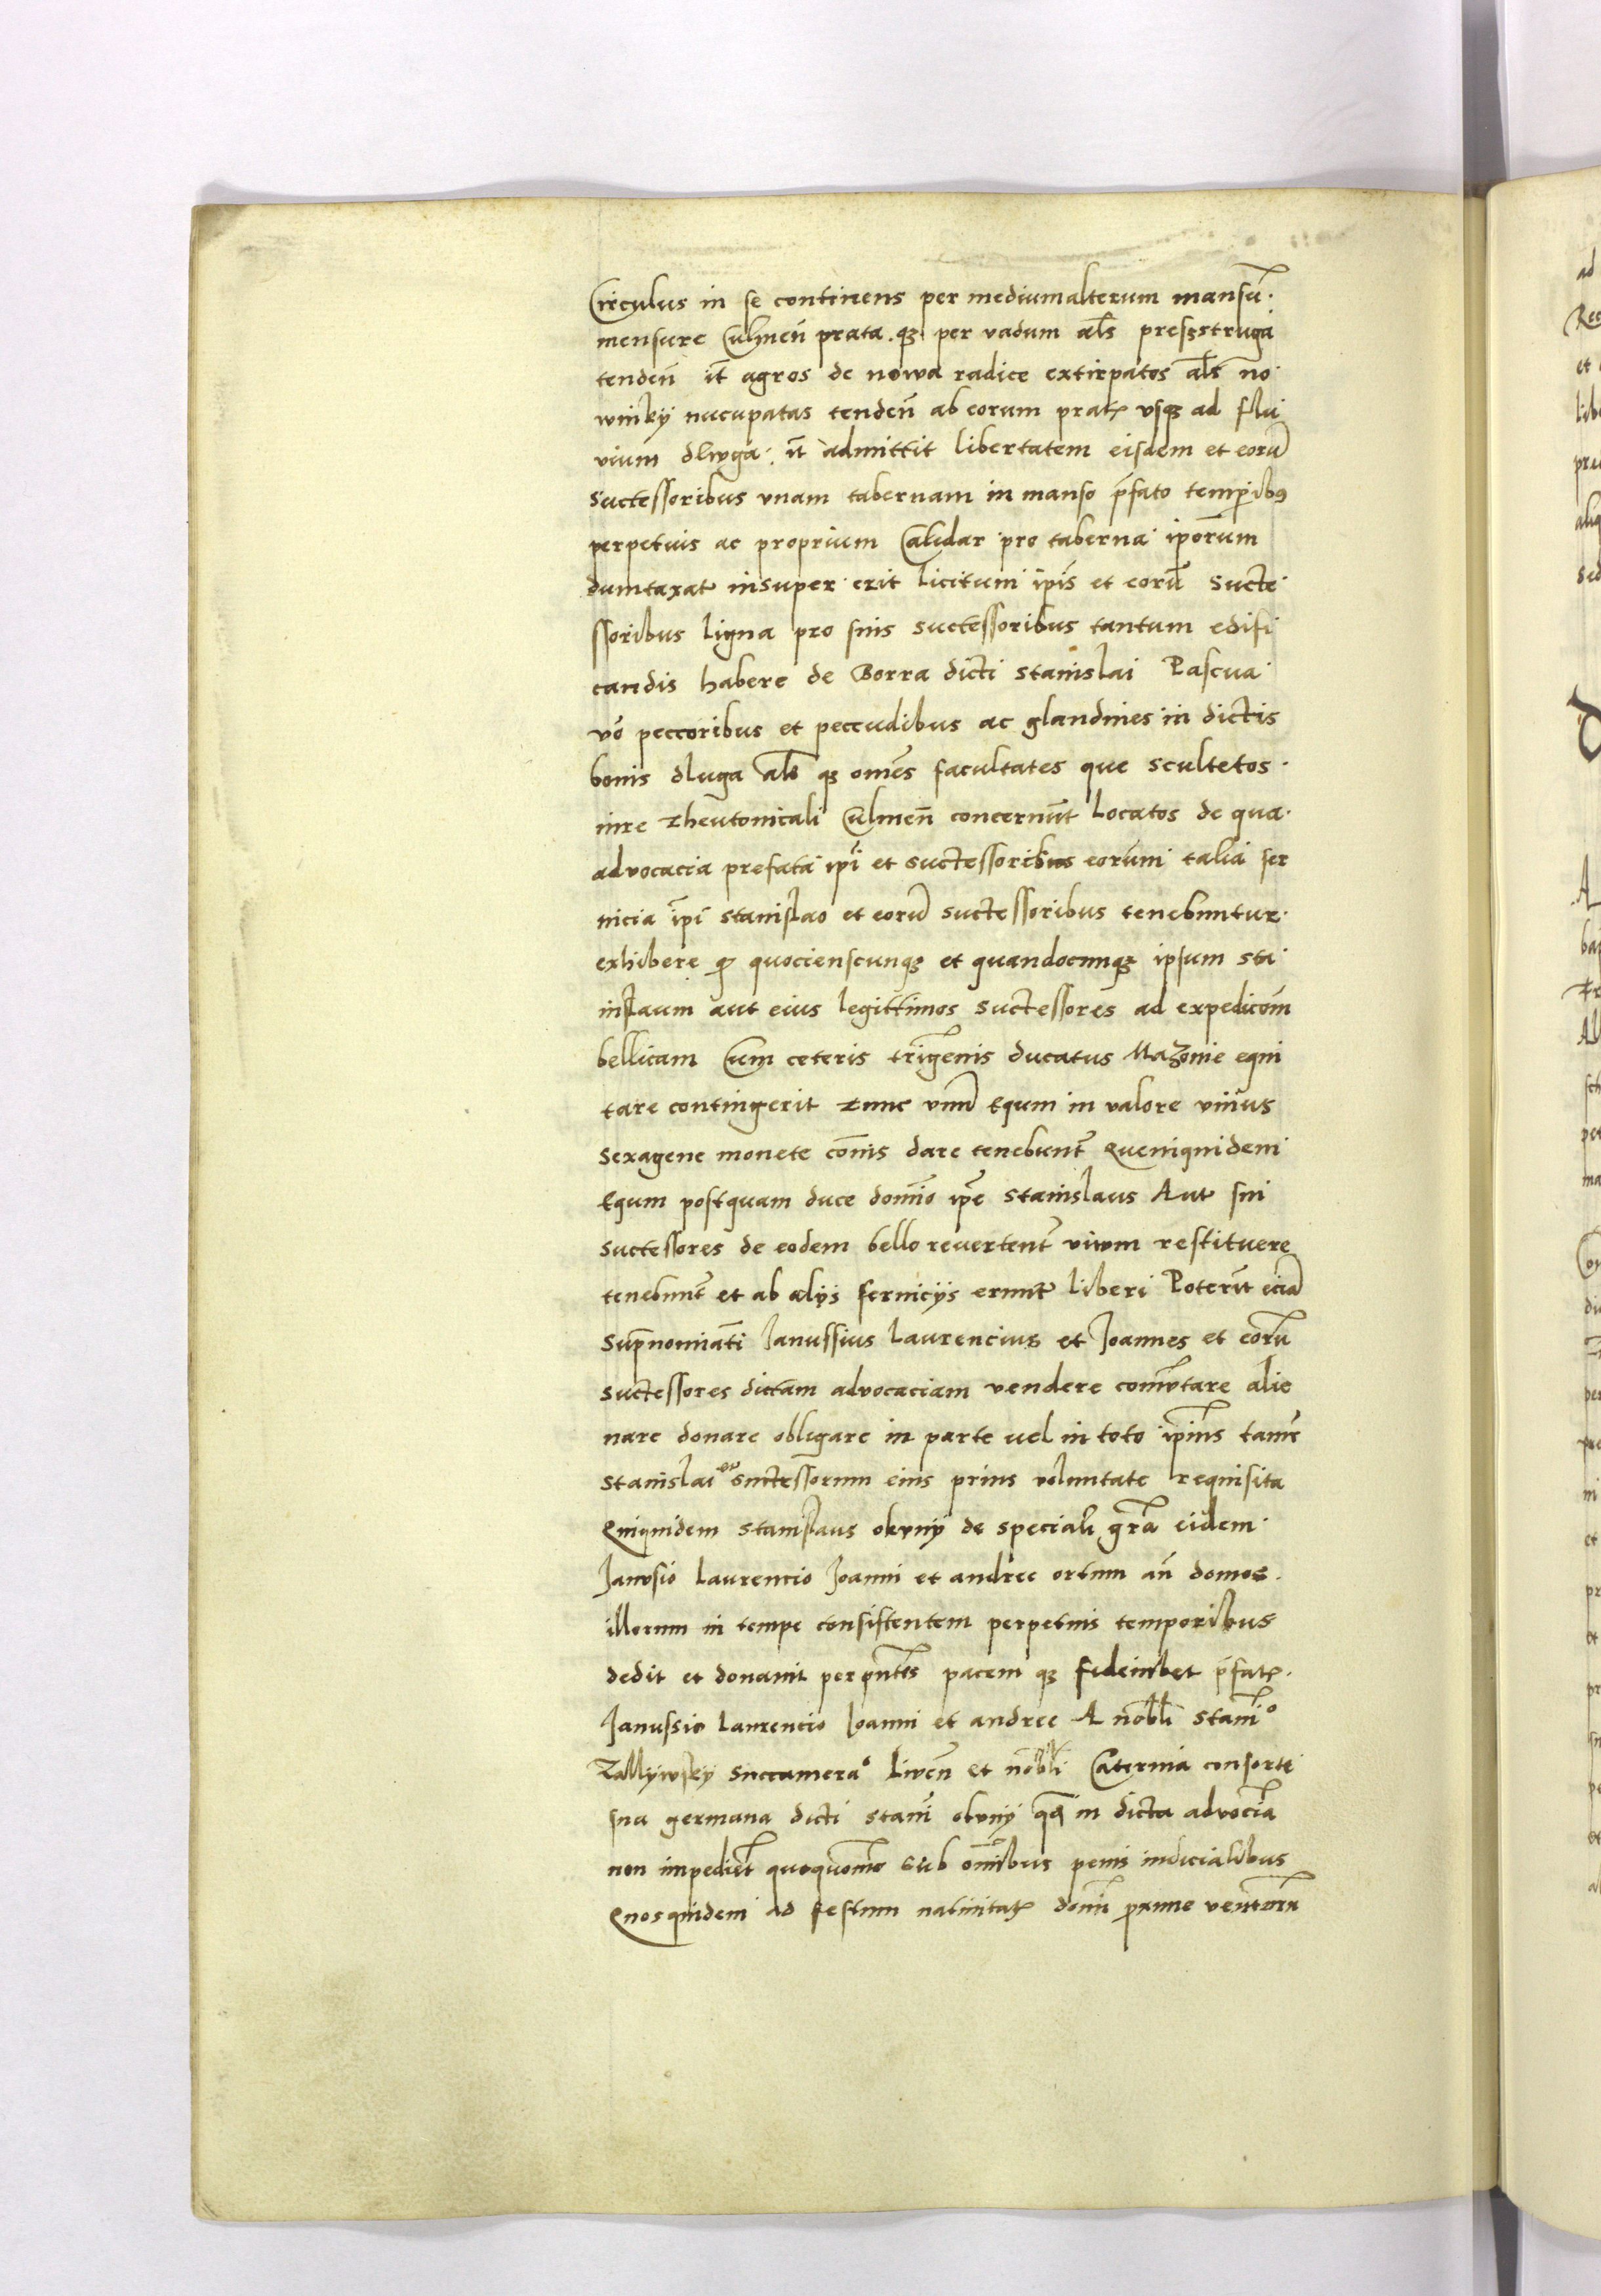 Circulus in se continens per mediumalterum mansū.
mensure Culmeñ prata. qȝ per vadum al̄s presżstruga
tendeñ it̄ agros de nowa radice extirpatos al̄s no
winky nucupatas tendeñ ab eorum pratꝭ vsqȝ ad flu
vium dlwga: it̄ admittit libertatem eisdem et eorū
suctessoribus vnam tabernam in manso p̄fato temporibꝰ
perpetuis ac proprium Caldar pro taberna ip̄orum
dumtaxat insuper erit licitum ip̄is et eorū sucte
ssoribus ligna pro suis suctessoribus tantum edifi
candis habere de Borra dicti stanislai Pascua
vō peccoribus et peccudibus ac glandines in dictis
bonis dluga al̄s qȝ om̄es facultates que scultetos.
iure Theutonicali Culmeñ concernūt Locatos de qua.
advocacia prefata ip̄i et suctessoribus eorum talia ser
uicia ip̄i stanislao et eorū suctessoribus tenebuntur.
exhibere ꝙ quocienscunqȝ et quandocunqȝ ipsum sta
nislaum aut eius legittimos suctessores ad expedicōm
bellicam Cum ceteris t̄rigenis ducatus Mazouie equi
tare contingerit tunc vnū Equm in valore vnius
sexagene monete com̄is dare tenebunt̄ Quemquidem
Equm postquam duce domīo ip̄e stanislaus Aut sui
suctessores de eodem bello revertent̄ viwm restituere
tenebunt̄ et ab alijs seruicijs erunt liberi Poterūt eciā
sup̄nomiāti Janussius Laurencius et Joannes et eorū
suctessores dictam advocaciam vendere comūtare alie
nare donare obligare in parte uel in toto ip̄ius tamē
stanislai et suctessorum eius prius voluntate requisita
Quiquidem stanislaus okvnÿ de speciali gr̄a eidem
Janvsio Laurencio Joanni et andree ortum añ domos.
illorum in tempe consistentem perpetuis temporibus
dedit et donauit per p̄ntes pacem qȝ fideiubet p̄fatꝭ.
Janussio Laurencio Joanni et andree A nobl̄i stani͞ᵒ
Zallÿwskÿ succameraᵒ Liwen̄ et nobl̄i Caterina consorte
sua germana dicti stani͞ okvnÿ qā in dicta advocīa
non impediet̄ quoquom̄o sub om̄ibus penis iudicialibus
Quosquidem ad festum natiuitatꝭ domī proxime ventorū